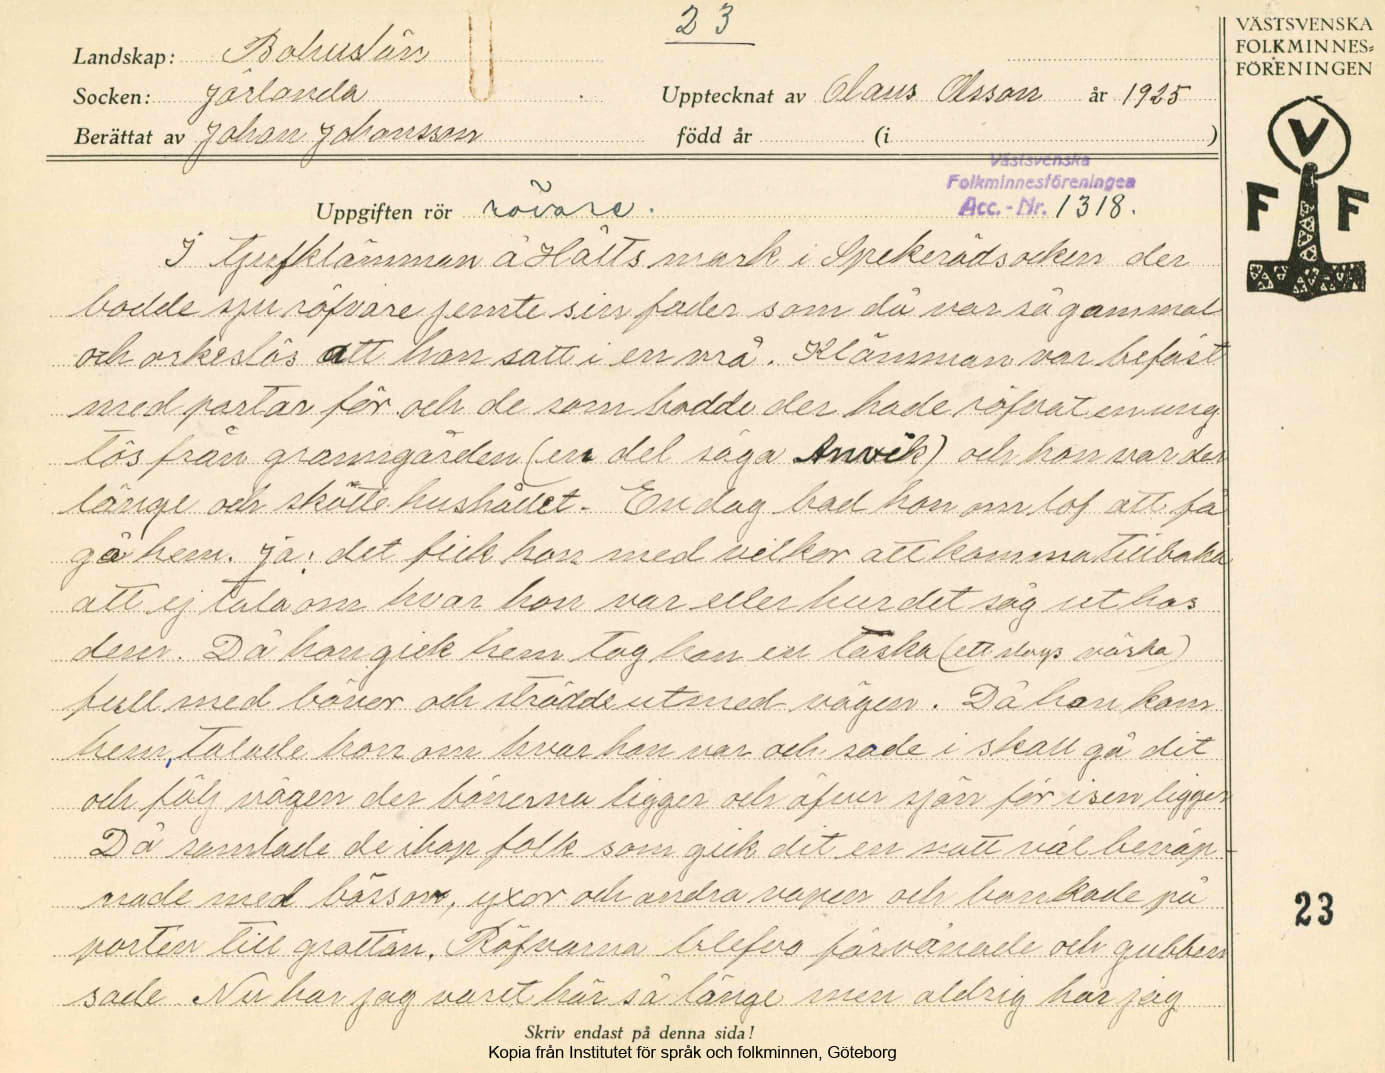 23
Landskap: Bohuslän
Socken: Jörlanda
Upptecknat av Claus Olsson år 1925
Berättat av Johan Johansson
född år (i )
VÄSTSVENSKA
FOLKMINNES=
FÖRENINGEN
V
F F
Västsvenska
Folkminnesföreningen
Acc.-Nr. 1318.
Uppgiften rör rövare.
I tjufklämman å Hålts mark i Spekerödsocken der
bodde sju röfvare jemte sin fader som då var så gammal
och orkeslös att han satt i en vrå. Klämman var befäst
med portar för och de som bodde der hade röfvat en ung
tös från granngården (en del säga Anvik) och hon var der
länge och skötte hushållet. En dag bad hon om lof att få
gå hem. Ja; det fick hon med vilkor att komma tillbaka
att ej tala om hvar hon var eller hur det såg ut hos
dem. Då hon gick hem tog hon en taska (ett slags väska)
full med bönor och strödde ut med vägen. Då hon kom
hem, talade hon om hvar hon var och sade i skall gå dit
och följ vägen der bönerna ligger och öfver sjön för isen ligger
Då samlade de ihop folk som gick dit en natt väl beväp-
nade med bössor, yxor och andra vapen och bankade på
porten till grottan. Röfvarna blefvo förvånade och gubben
sade Nu har jag varit här så länge men aldrig har jag
Skriv endast på denna sida!
Kopia från Institutet för språk och folkminnen, Göteborg
23